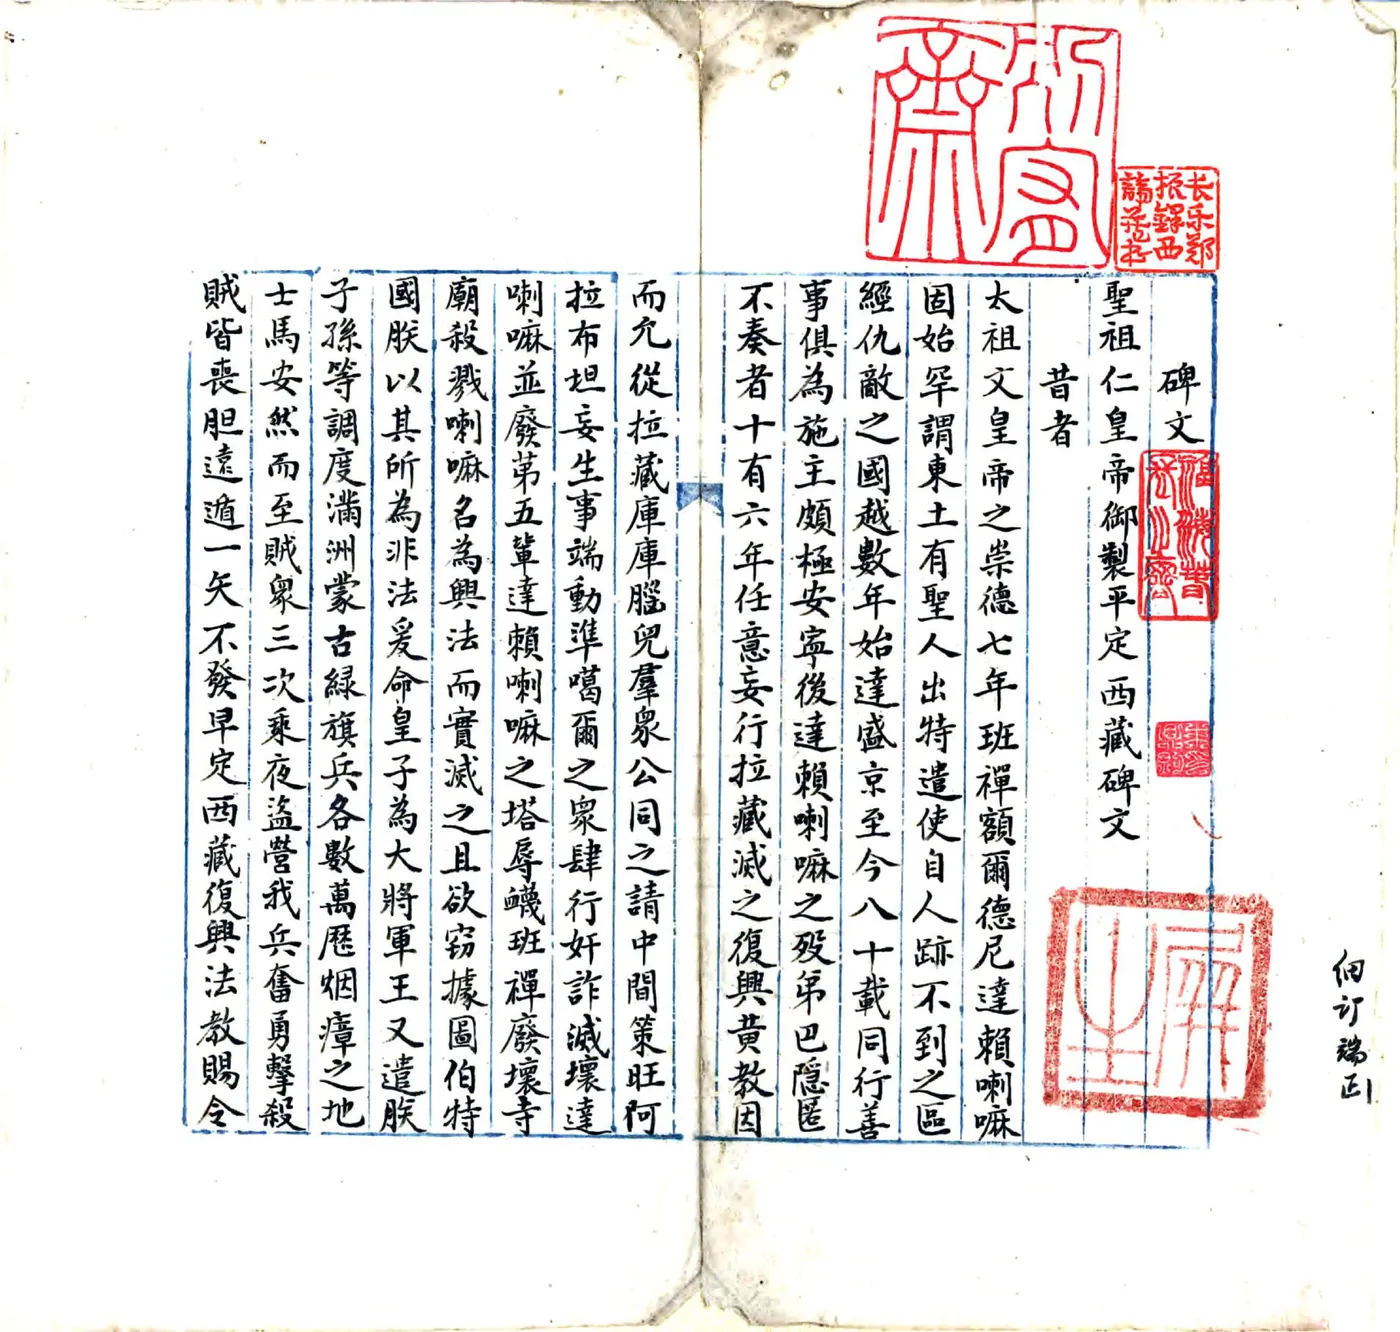 碑文
聖祖仁皇帝御製平定西藏碑文
昔者
太祖文皇帝之崇德七年班禪額爾德尼達賴喇嘛
固始罕謂東土有聖人出特遣使自人跡不到之區
經仇敵之國越數年始達盛京至今八十載同行善
事俱為施主頗極安寧後達賴喇嘛之殁弟巴隱匿
不奏者十有六年任意妄行拉藏滅之復興黃教因
而允從拉藏庫庫腦兒羣衆公同之請中間策旺阿
拉布坦妄生事端動準噶爾之衆肆行奸詐滅壞達
喇嘛並廢第五輩達賴喇嘛之塔辱衊班禪廢壞寺
廟殺戮喇嘛名為興法而實滅之且欲竊據圖伯特
國朕以其所為非法爰命皇子為大將軍王又遣朕
子孫等調度滿洲蒙古緑旗兵各數萬歷烟瘴之地
士馬安然而至賊衆三次乘夜盜營我兵奮勇擊殺
賊皆喪胆遠遁一矢不發早定西藏復興法教賜令
长乐郑
振铎西
諦藏书
細訂端正